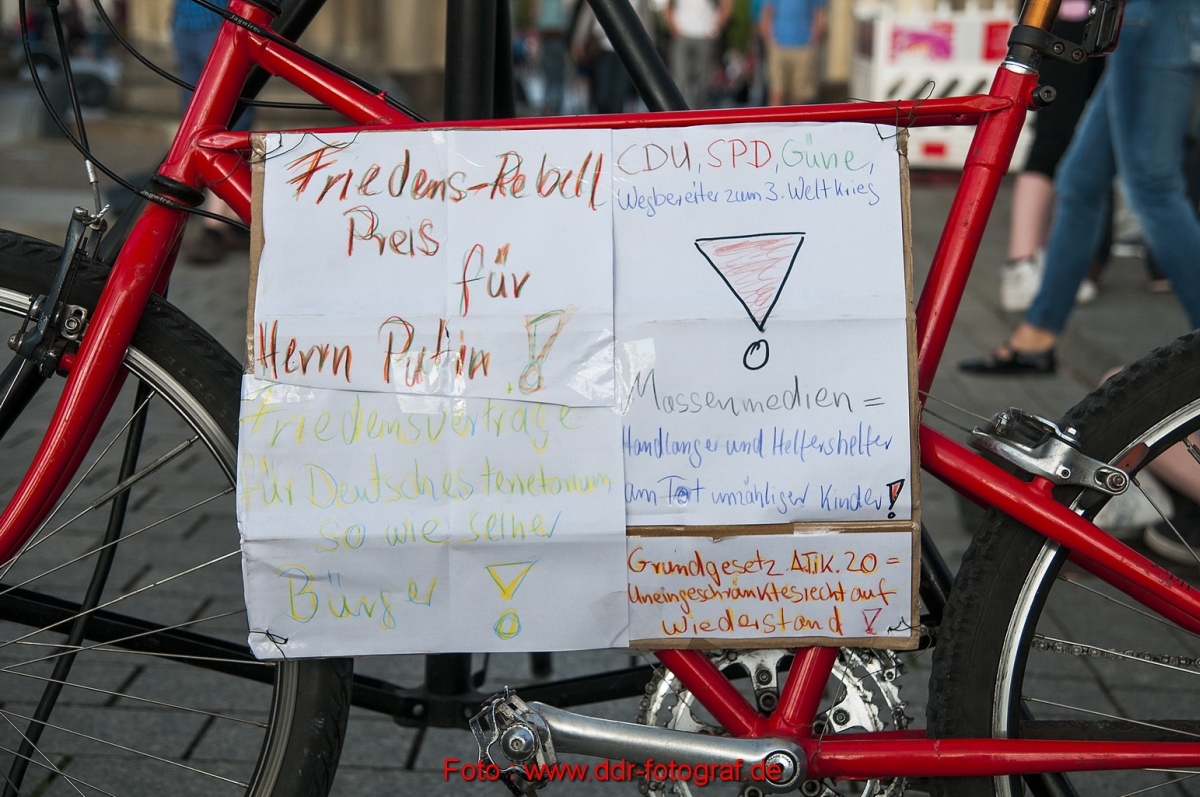 Friedens-Rebell
Preis
für
Herrn Putin !
Friedensverträge
für Deutsches terretorium
so wie seiner
Bürger !
CDU, SPD, Güne,
Wegbereiter zum 3. Weltkrieg
!
Massenmedien =
Handlanger und Helfershelfer
am Tot unzähliger Kinder!
Grundgesetz ATiK. 20 =
Uneingeschränktes recht auf
wiederstand !
Foto : www.ddr-fotograf.de